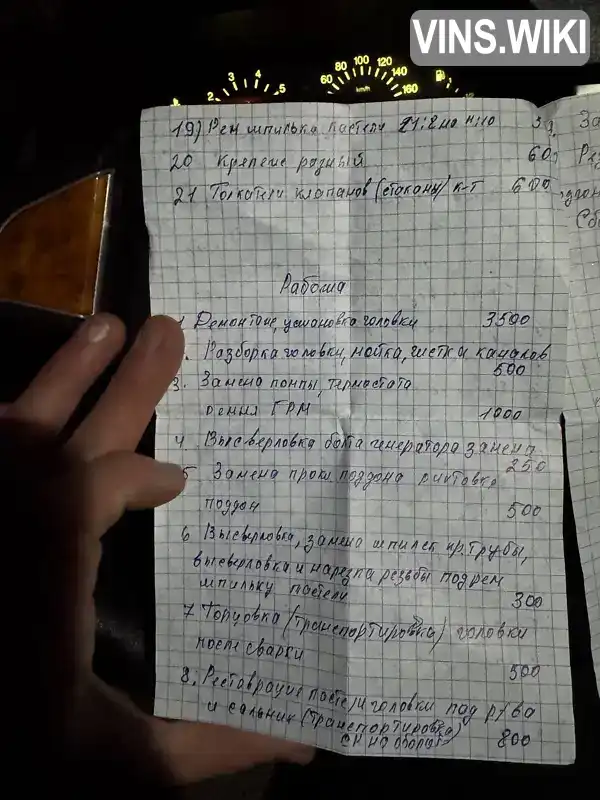 VINS.WIKI
2 3 4 5
60 80 100 120 140 160
km/h
19) Рем шпилька пастели М10
20 Крепеж разный 60
21 Толкатели клапанов (стаканы) к-т 600
За
Рез
Сбо
Работа
Демонтаж, установка головки 3500
Разборка головки, мойка, чистка каналов
500
3. Замена помпы, термостата
ремня ГРМ 1000
4 Высверловка болта генератора замена
250
5 Замена прокл поддона рихтовка
поддон 500
6 Высверловка, замена шпилек пр.трубы,
высверловка и нарезка резьбы под рем
шпильку пастели 300
7 Торцовка (транспортировка) головки
после сварки
500
8. Реставрация пастели головки под р/ва
и сальник (транспортировка)
800